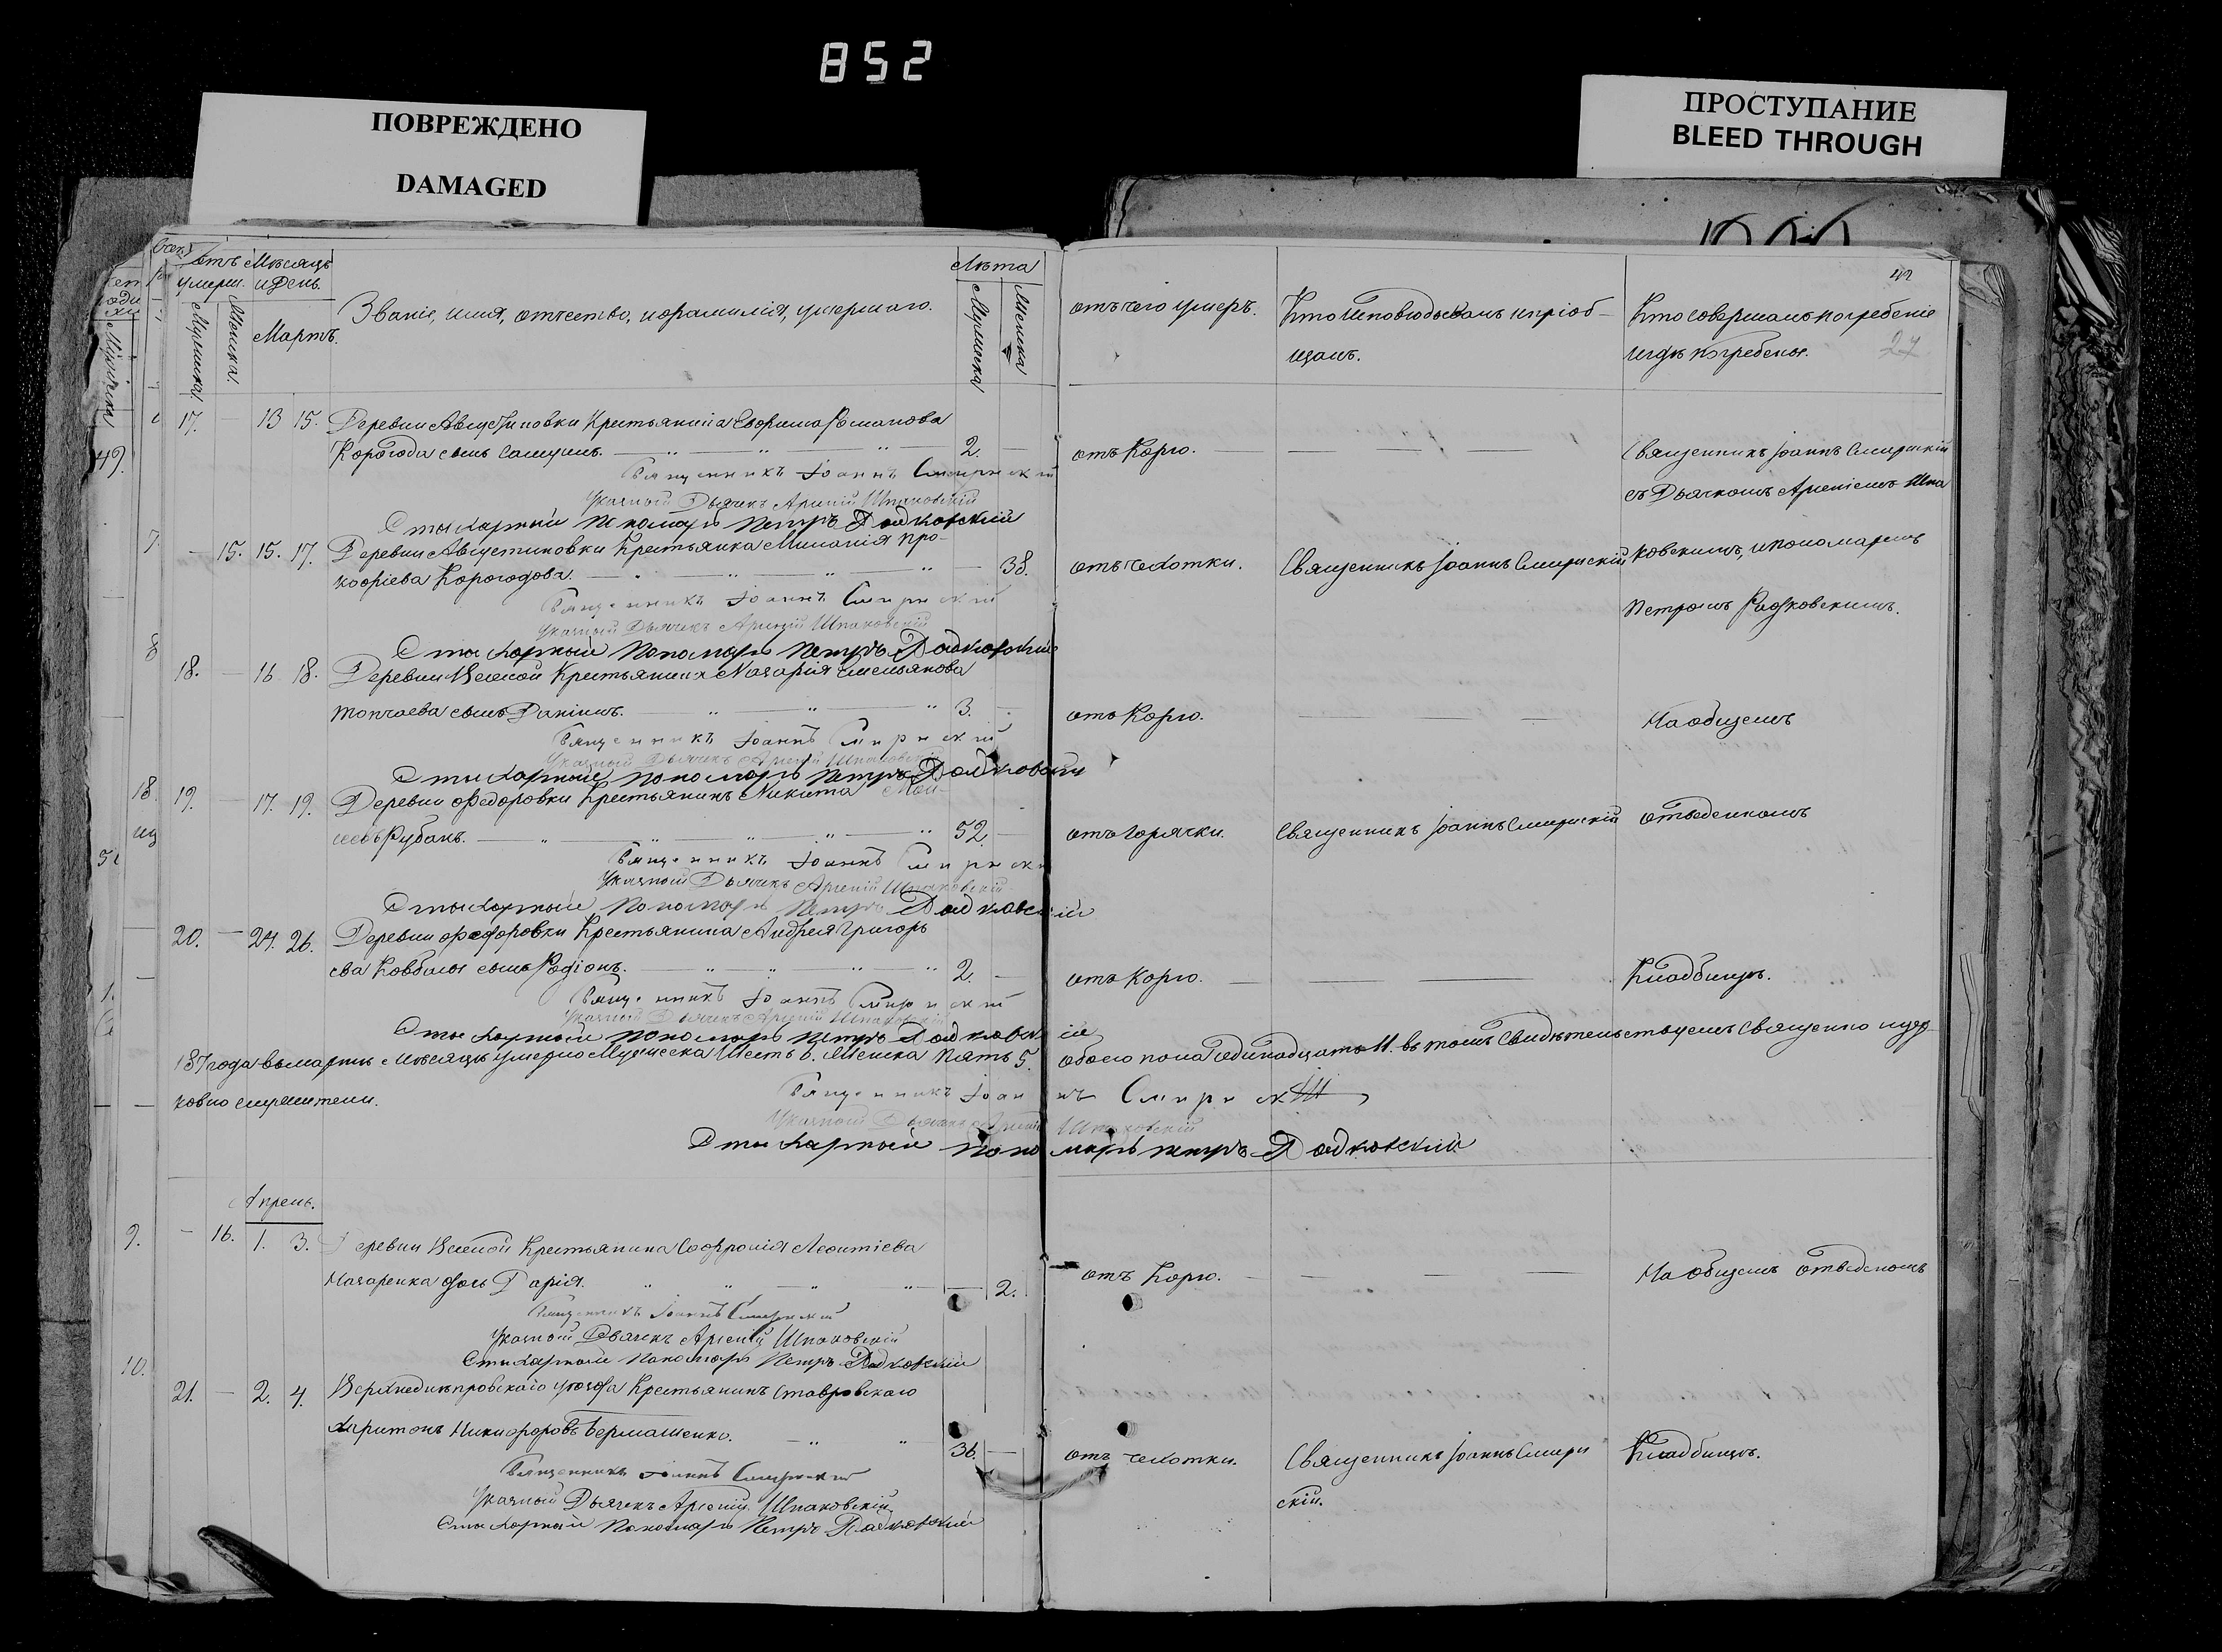 852
ПОВРЕЖДЕНО
DAMAGED
ПРОСТУПАНИЕ
BLEED THROUGH
42
27
Мѣсяцъ
умерш. и день.
Мартъ.
Мужеска Женска.
Званіе, имя, отчество, и фамилія, умершаго.
Лѣта
Мужеска Женска
отъ чего умеръ.
Кто исповѣдывалъ и пріоб-
щалъ.
Кто совершалъ погребеніе
и гдѣ погребены.
17. — 13 15. Деревни Августиновки Крестьянина Ефима Романова
Корогода сынъ Самуилъ. 2. — отъ Корю.
Священникъ Іоаннъ Смирнскій
съ Дьячкомъ Арсеніемъ Шпа
Священникъ Іоаннъ Смирнскій
Указный Дьячекъ Арсеній Шпаковскій
Стихарный Пономарь Петръ Радковскій
7. — 15. 15. 17. Деревни Августиновки Крестьянка Миланія Про-
кофіева Корогодова. — 38. отъ чехотки. Священникъ Іоаннъ Смирнскій
ковскимъ, и пономаремъ
Петромъ Радковскимъ.
Священникъ Іоаннъ Смирнскій
Указный Дьячекъ Арсеній Шпаковскій
Стихарный Пономарь Петръ Радковскій
8
18. — 16 18. Деревни Крестьянина Назарія Емельянова
Топчаева сынъ Даніилъ. 3. — отъ Корю. На общемъ
Священникъ Іоаннъ Смирнскій
Указный Дьячекъ Арсеній Шпаковскій
Стихарный Пономарь Петръ Радковскій
18. 19. — 17. 19. Деревни Федоровки Крестьянинъ Никита Мои-
сеевъ Рубанъ. 52. — отъ горячки. Священникъ Іоаннъ Смирнскій отведенномъ
Священникъ Іоаннъ Смирнскій
Указный Дьячекъ Арсеній Шпаковскій
Стихарный Пономарь Петръ Радковскій
20. — 24. 26. Деревни Федоровки Крестьянина Андрея Григорь
ева Ковбасы сынъ Родіонъ. 2. — отъ Корю. Кладбищѣ.
Священникъ Іоаннъ Смирнскій
Указный Дьячекъ Арсеній Шпаковскій
Стихарный Пономарь Петръ Радковскій
года въ мартѣ мѣсяцѣ умерло Мужеска Шесть 6. Женска Пять 5. обоего пола Одинадцать 11. въ томъ Свидѣтельствуемъ Священно и цер
ковно служители.
Священникъ Іоаннъ Смирнскій
Указный Дьячекъ Арсеній Шпаковскій
Стихарный Пономарь Петръ Радковскій
Апрель.
9. — 16. 1. 3. Деревни Крестьянина Софронія Леонтіева
Назаренка дочь Дарія. — 2. отъ Корю. На общемъ отведеномъ
Священникъ Іоаннъ Смирнскій
Указный Дьячекъ Арсеній Шпаковскій
Стихарный Пономарь Петръ Радковскій
10.
21. — 2. 4. Верхнеднѣпровскаго уѣзда Крестьянинъ Ставровскаго
Харитонъ Никифоровъ Бермашенко. 36. — отъ чехотки. Священникъ Іоаннъ Смирн
скій.
Кладбищѣ.
Священникъ Іоаннъ Смирнскій
Указный Дьячекъ Арсеній Шпаковскій
Стихарный Пономарь Петръ Радковскій